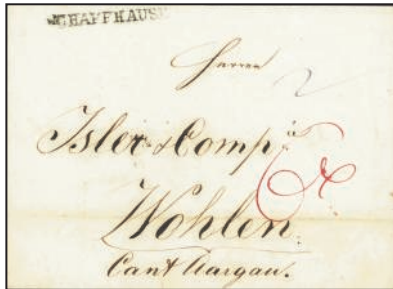 SCHAFFHAUSE
Herren
Isler & Comp
Wohlen.
Cant Aargau.